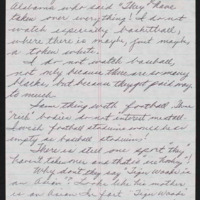 Alabama who said "They have
taken over everything! I do not
watch especially basketball,
where there is maybe, just maybe,
a token white.
I do not watch baseball,
not only because there are so many
blacks, but because they get paid way
too much.
Same thing with football. Those
"rich" bodies do not interest me at all.
I wish football stadiums would be as
empty as baseball stadiums!
There is still one sport they
haven't taken over and that is
Why don't they say "Tiger Woods
is an Asian? Looks like his mother
is an Asian. In fact, Tiger Woods